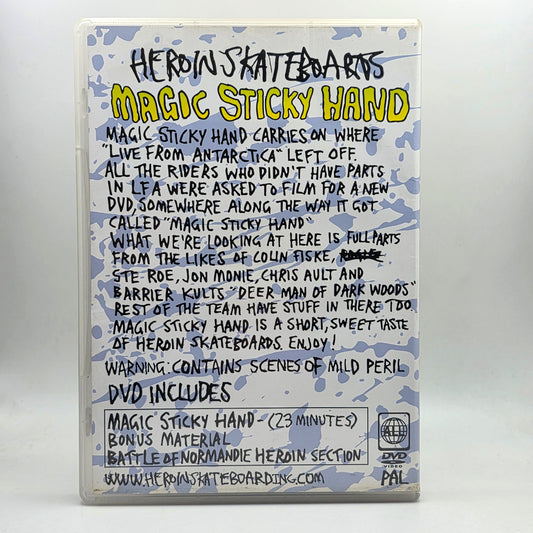 HEROIN SKATEBOARDS
MAGIC STICKY HAND
MAGIC STICKY HAND CARRIES ON WHERE
"LIVE FROM ANTARCTICA" LEFT OFF.
ALL THE RIDERS WHO DIDN'T HAVE PARTS
IN LFA WERE ASKED TO FILM FOR A NEW
DVD, SOMEWHERE ALONG THE WAY IT GOT
CALLED "MAGIC STICKY HAND"
WHAT WE'RE LOOKING AT HERE IS FULL PARTS
FROM THE LIKES OF COLIN FISKE,
STE ROE, JON MONIE, CHRIS AULT AND
BARRIER KULTS "DEER MAN OF DARK WOODS"
REST OF THE TEAM HAVE STUFF IN THERE TOO
MAGIC STICKY HAND IS A SHORT, SWEET TASTE
OF HEROIN SKATEBOARDS. ENJOY!
WARNING: CONTAINS SCENES OF MILD PERIL
DVD INCLUDES
MAGIC STICKY HAND - (23 MINUTES)
BONUS MATERIAL
BATTLE OF NORMANDIE HEROIN SECTION
WWW.HEROINSKATEBOARDING.COM
ALL
DVD
VIDEO
PAL